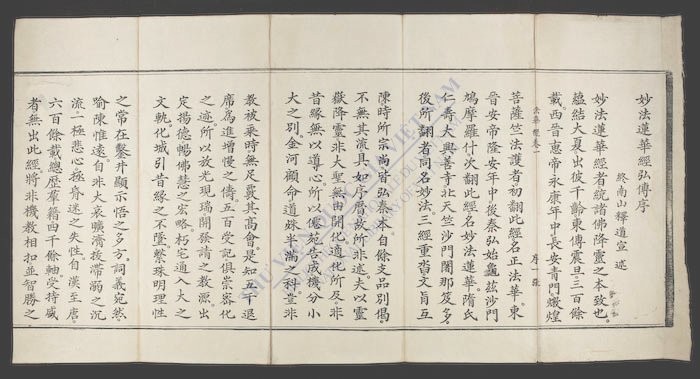 妙法蓮華經弘傳序
終南山釋道宣 述
妙法蓮華經者統諸佛降靈之本致也。
蘊結大夏出彼千齡東傳震旦三百餘
載。西晉惠帝永康年中長安青門燉煌
菩薩竺法護者初翻此經名正法華。東
法華經卷一 序 一張
晉安帝隆安年中後秦弘始龜茲沙門
鳩摩羅什次翻此經名妙法蓮華。隋氏
仁壽大興善寺北天竺沙門闍那笈多。
後所翻者同名妙法三經重沓文旨互
陳時所宗尚皆弘秦本自餘支品別偈。
不無其流具如序曆故所非述。夫以靈
嶽降靈非大聖無由開化適化所及非
昔緣無以導心。所以僊苑告成機分小
大之別。金河顧命道殊半滿之科。豈非
教被乘時無足覈其高會。是知五千退
席為進增慢之儔。五百受記俱崇密化
之迹。所以放光現瑞開發請之教源出
定揚德暢佛慧之宏略。朽宅通入大之
文軌。化城引昔緣之不墜。繫珠明理性
之常在鑿井顯示悟之多方。詞義宛然。
喻陳惟遠。自非大哀曠濟拔滯溺之沉
流一極悲心拯昏迷之失性。自漢至唐。
六百餘載總歷羣籍四千餘軸。受持盛
者無出此經將非機教相扣並智勝之